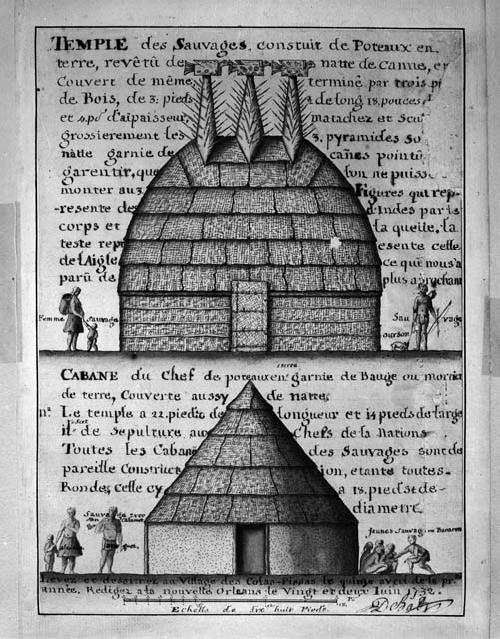 TEMPLE des Sauvages, constuit de Poteaux en
terre, revêtu de natte de Canne, et
Couvert de même, terminé par trois pi
de Bois, de 3: pieds de long 18. pouces
et d'aipaisseur, matachez et Scul
grossierement les 3. pyramides so
natte garnie de canes pointu
garentir, que lon ne puisse
monter aux figures qui rep-
-resente des d'indes par le
corps et la queüe, la
teste rep esente celle
de l'Aigle ce qui nous a
parû de plus aprochant
Femme Sauvage
Sauvage
ourson
CABANE du Chef de poteaux en garnie de Bauge ou mortié
terre
de terre, Couverte aussy de natte,
nª Le temple a 22. pieds de longueur et 14 pieds de large
il Sert de Sepulture aux Chefs de la Nations
Toutes les Caban des Sauvages sont de
pareille Construct ion, etante toutes-
Ronde, Celle cy a 18. pieds de-
diametre
Sauvage avec
son Calumet
Jeunes Sauvag
Levez et dessinez au Village des Colas-Pissas le quinze avril de la pre
année. Redigez a la nouvelle Orleans le Vingt et deux Juin 1732.
Echelle de dix huit Pieds.